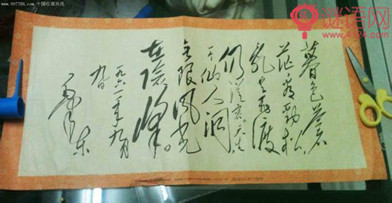 暮色苍
茫看劲松
乱云飞渡
仍從容天生
一个仙人洞
无限风光
在險峰。
一九六一年九月
九日
毛泽东
www.997788.com 中国收藏热线